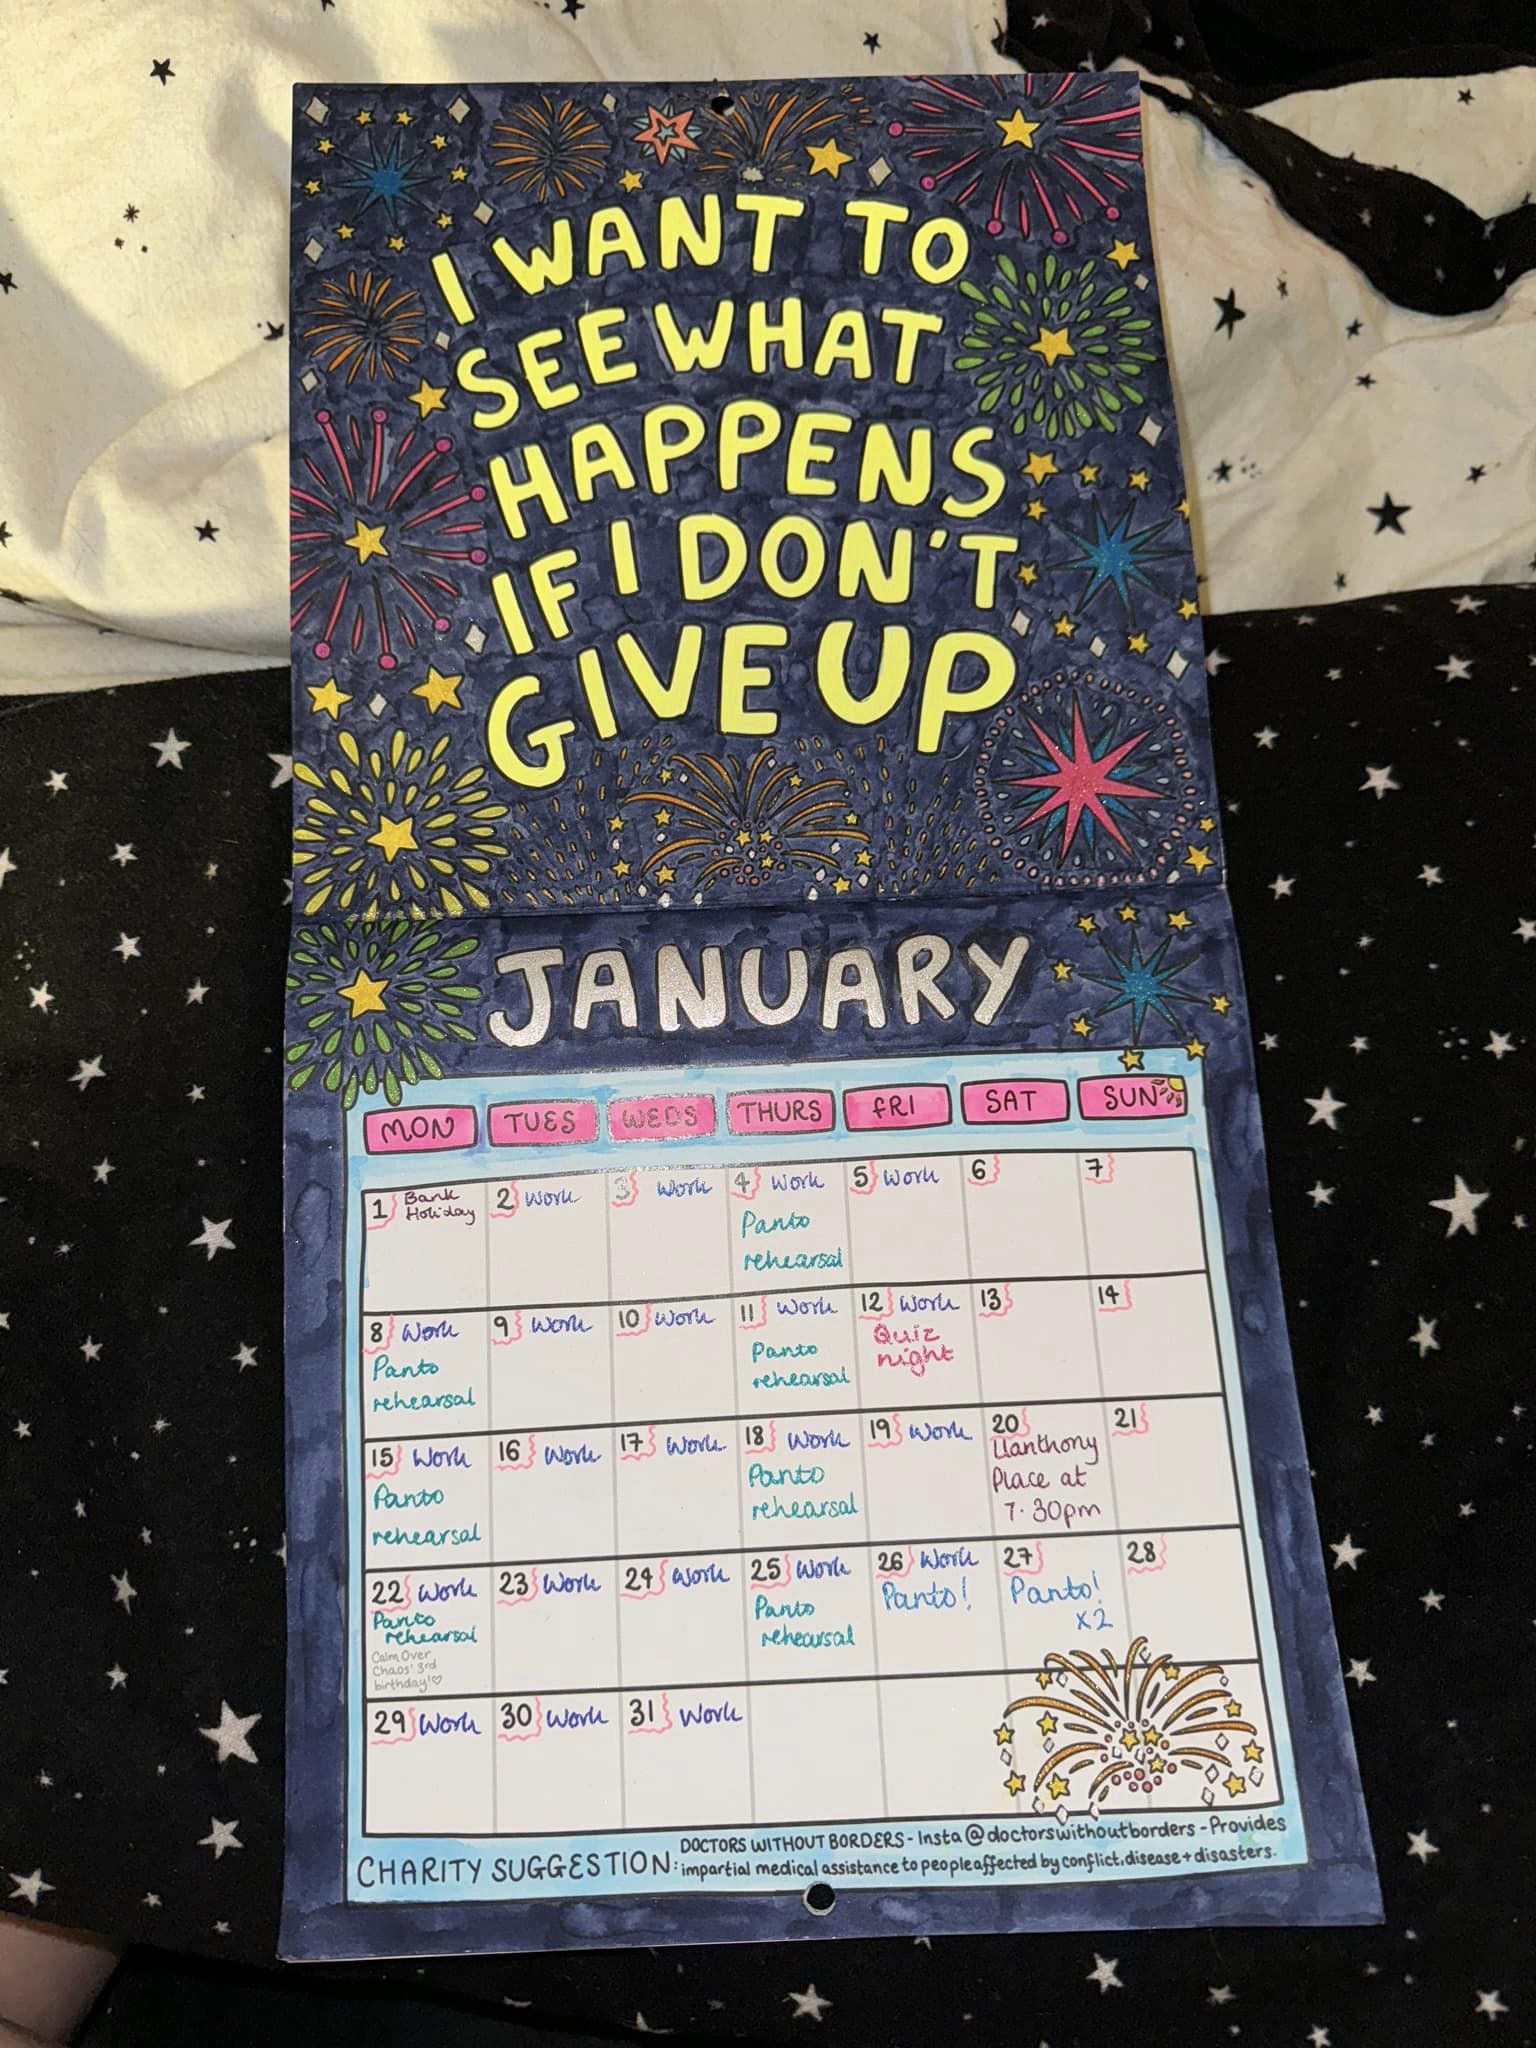 I WANT TO
SEE WHAT
HAPPENS
IF I DON'T
GIVE UP
JANUARY
MON TUES WEDS THURS FRI SAT SUN
1 Bank
Holiday
2 Work
3 Work
4 Work
Panto
rehearsal
5 Work
6
7
8 Work
Panto
rehearsal
9 Work
10 Work
11 Work
Panto
rehearsal
12 Work
Quiz
night
13
14
15 Work
Panto
rehearsal
16 Work
17 Work
18 Work
Panto
rehearsal
19 Work
20
Llanthony
Place at
7.30pm
21
22 Work
Panto
rehearsal
Calm Over
Chaos' 3rd
birthday!♡
23 Work
24 Work
25 Work
Panto
rehearsal
26 Work
Panto!
27
Panto!
x2
28
29 Work
30 Work
31 Work
CHARITY SUGGESTION: DOCTORS WITHOUT BORDERS - Insta @doctorswithoutborders - Provides
impartial medical assistance to people affected by conflict, disease + disasters.